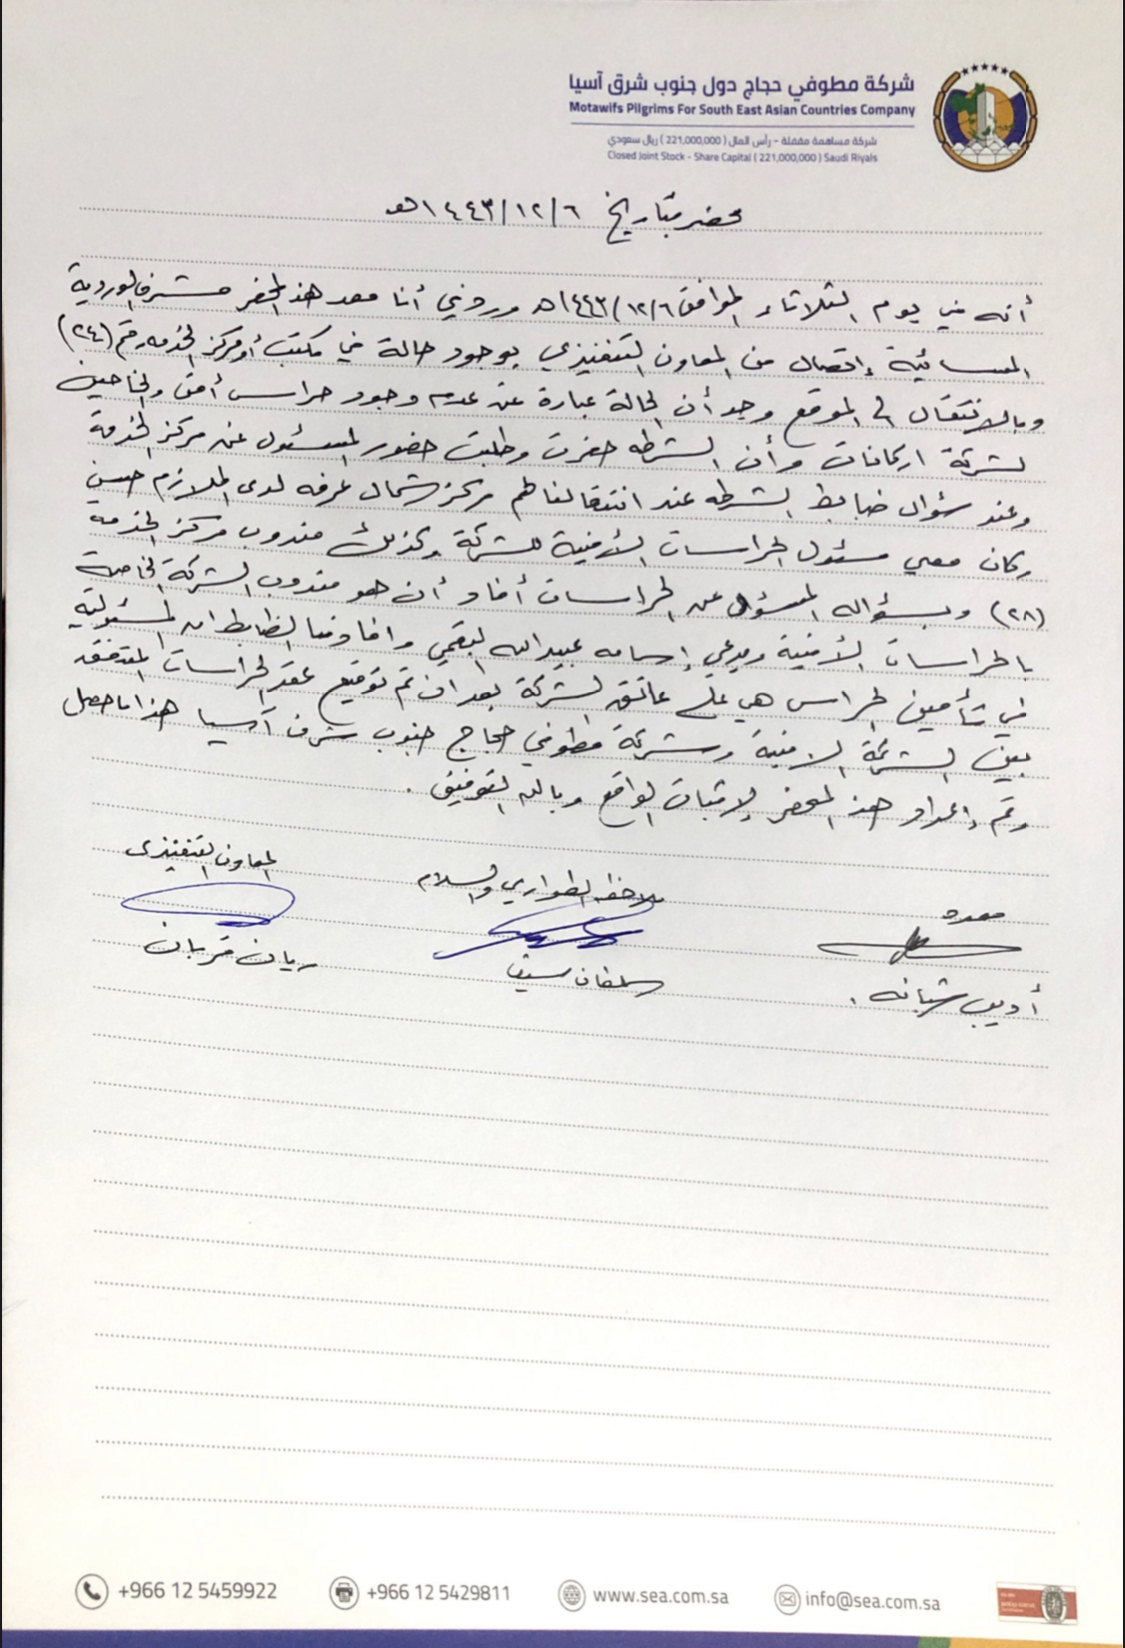 شركة مطوفي حجاج دول جنوب شرق آسيا
Motawifs Pilgrims For South East Asian Countries Company
شركة مساهمة مقفلة - رأس المال ( 221,000,000 ) ريال سعودي
Closed Joint Stock - Share Capital ( 221,000,000 ) Saudi Riyals
محضر بتاريخ ١٤٤٣/١٢/٦هـ
أنه في يوم الثلاثاء الموافق ١٤٤٣/١٢/٦هـ وردني أنا معد هذا المحضر مشرف الوردية
المسائية إتصال من المعاون التنفيذي بوجود حالة في مكتب أو مركز الخدمه رقم (٢٤)
وبالانتقال الى الموقع وجد أن الحالة عبارة عن عدم وجود حراس أمن والخاصين
لشركة اركانات وأن الشرطه حضرت وطلبت حضور المسئول عن مركز الخدمة
وعند سؤال ضابط الشرطه عند انتقالنا لهم مركز شمال عرفه لدى الملازم حسين
وكان معي مسئول الحراسات الأمنية للشركة وكذلك مندوب مركز الخدمة
(٢٨) وبسؤاله المسؤل عن الحراسات أفاد أن هو مندوب الشركة الخاصة
بالحراسات الأمنية ويدعي إسامه عبيدالله البقمي وافاد منا الضابط ان المسئولية
في تأمين الحراس هي على عاتق الشركة بعد ان تم توقيع عقد الحراسات المتفق
بين الشركة الامنية وشركة مطوفي حجاج جنوب شرق آسيا هذا ما حصل
وتم إعداد هذا المحضر لإثبات الواقع وبالله التوفيق .
معده
ملاحظ الطوارئ والسلام
المعاون التنفيذى
أديب شبانه .
سلفان سيف
ريان قربان
+966 12 5459922
+966 12 5429811
www.sea.com.sa
info@sea.com.sa